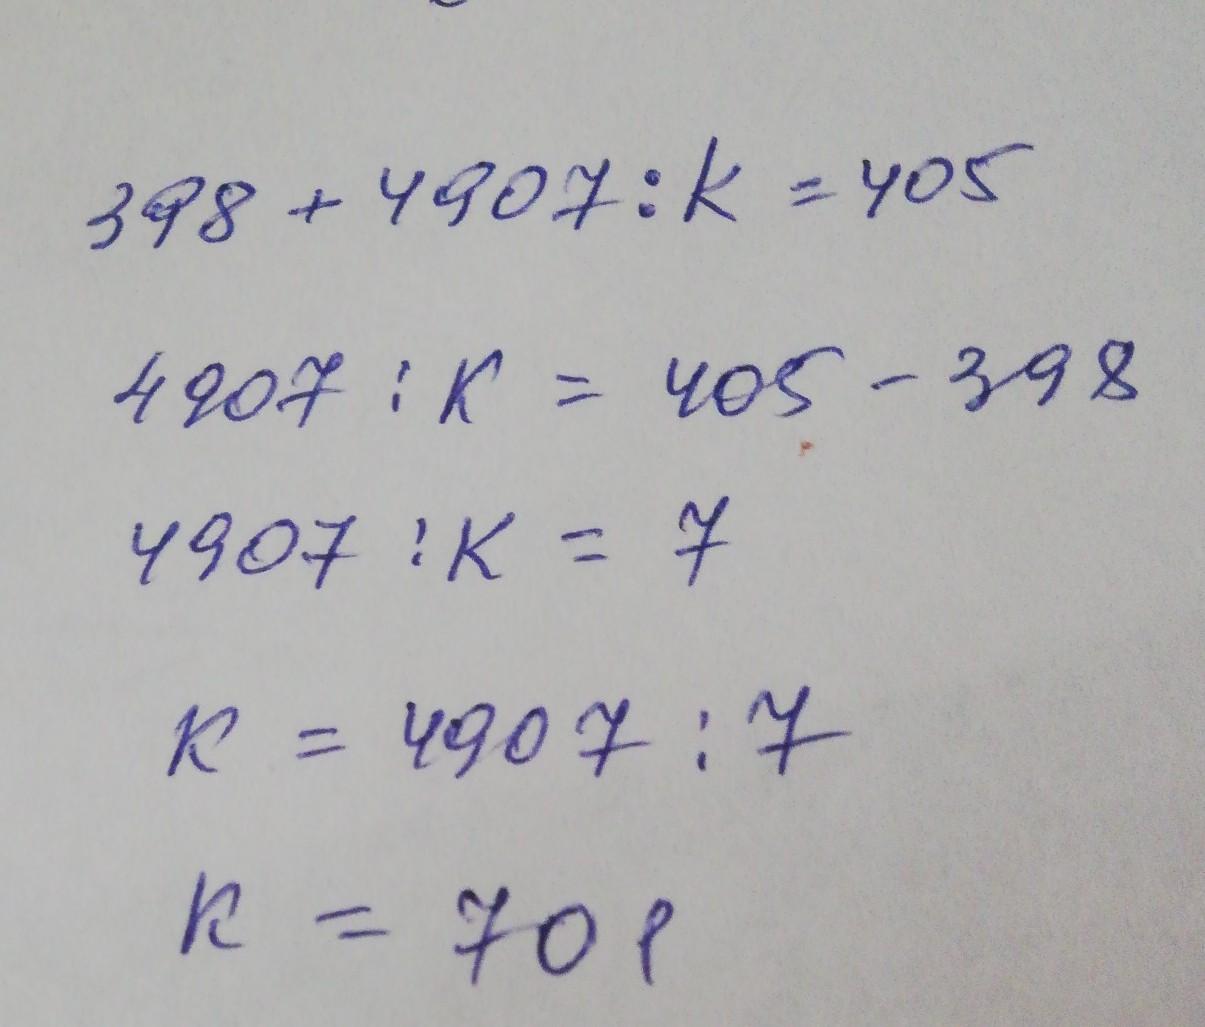 398 + 4907 : k = 405
4907 : K = 405 - 398
4907 : K = 7
K = 4907 : 7
K = 701